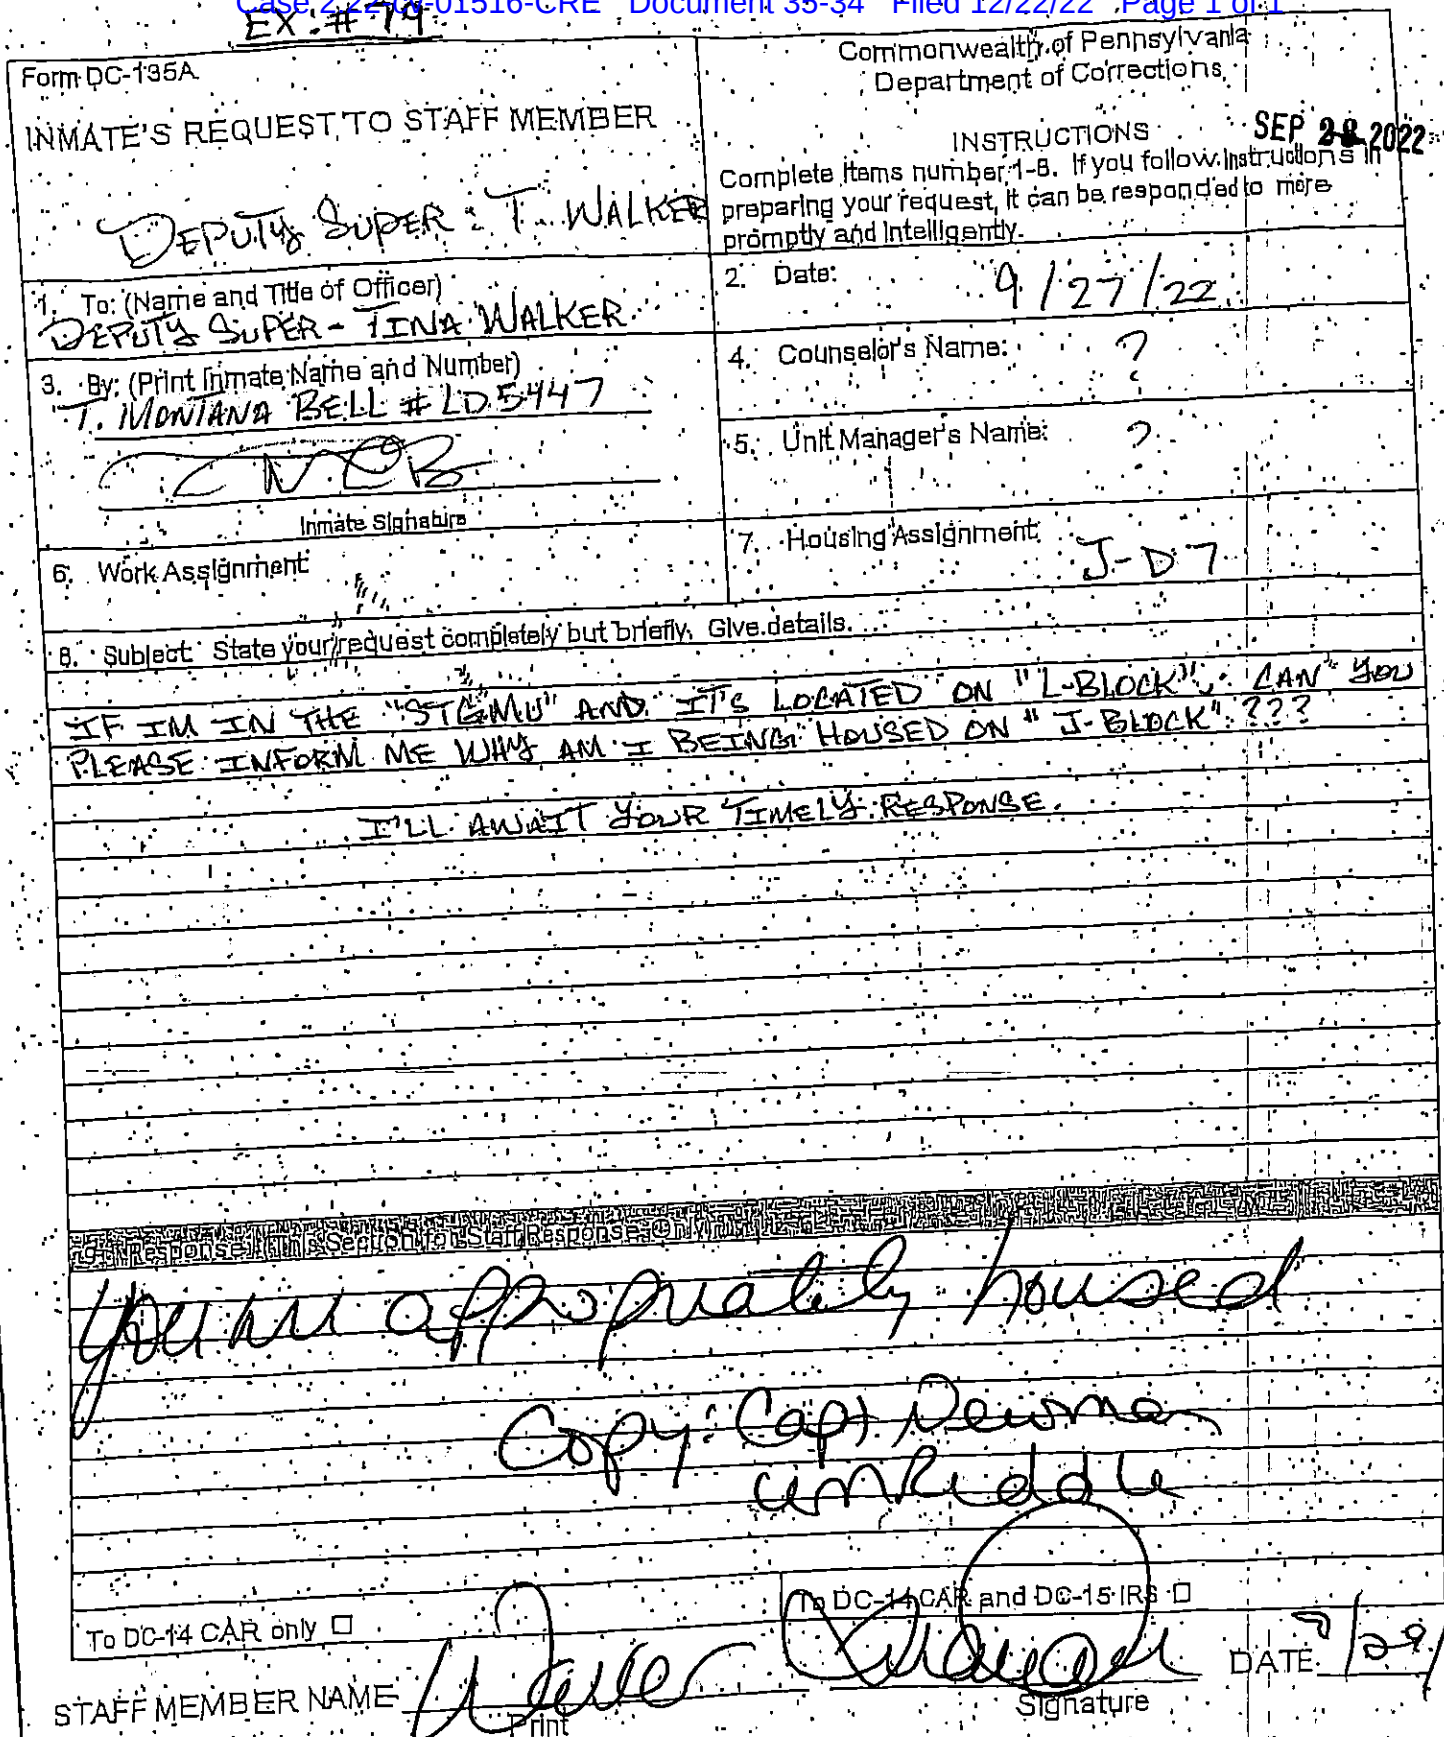 Case 2:22-cv-01516-CRE Document 35-34 Filed 12/22/22 Page 1 of 1
EX: # 79
Form DC-135A
INMATE'S REQUEST TO STAFF MEMBER
DEPUTY SUPER: T. WALKER
Commonwealth of Pennsylvania
Department of Corrections
INSTRUCTIONS
SEP 28 2022
Complete items number 1-8. If you follow instructions in
preparing your request, it can be responded to more
promptly and intelligently.
1. To: (Name and Title of Officer)
DEPUTY SUPER - TINA WALKER
2. Date: 9/27/22
3. By: (Print Inmate Name and Number)
T. MONTANA BELL # LD5447
Inmate Signature
4. Counselor's Name: ?
5. Unit Manager's Name: ?
6. Work Assignment
7. Housing Assignment J-D7
8. Subject: State your request completely but briefly. Give details.
IF IM IN THE "STGMU" AND IT'S LOCATED ON "L-BLOCK", CAN YOU
PLEASE INFORM ME WHY AM I BEING HOUSED ON "J-BLOCK"???
I'LL AWAIT YOUR TIMELY RESPONSE.
9. Response: (This Section for Staff Response Only)
appropriately housed
Copy: Capt Newman
um Riddle
To DC-14 CAR only
To DC-14 CAR and DC-15 IRS
STAFF MEMBER NAME Walker
Print
Signature
DATE 9/29/